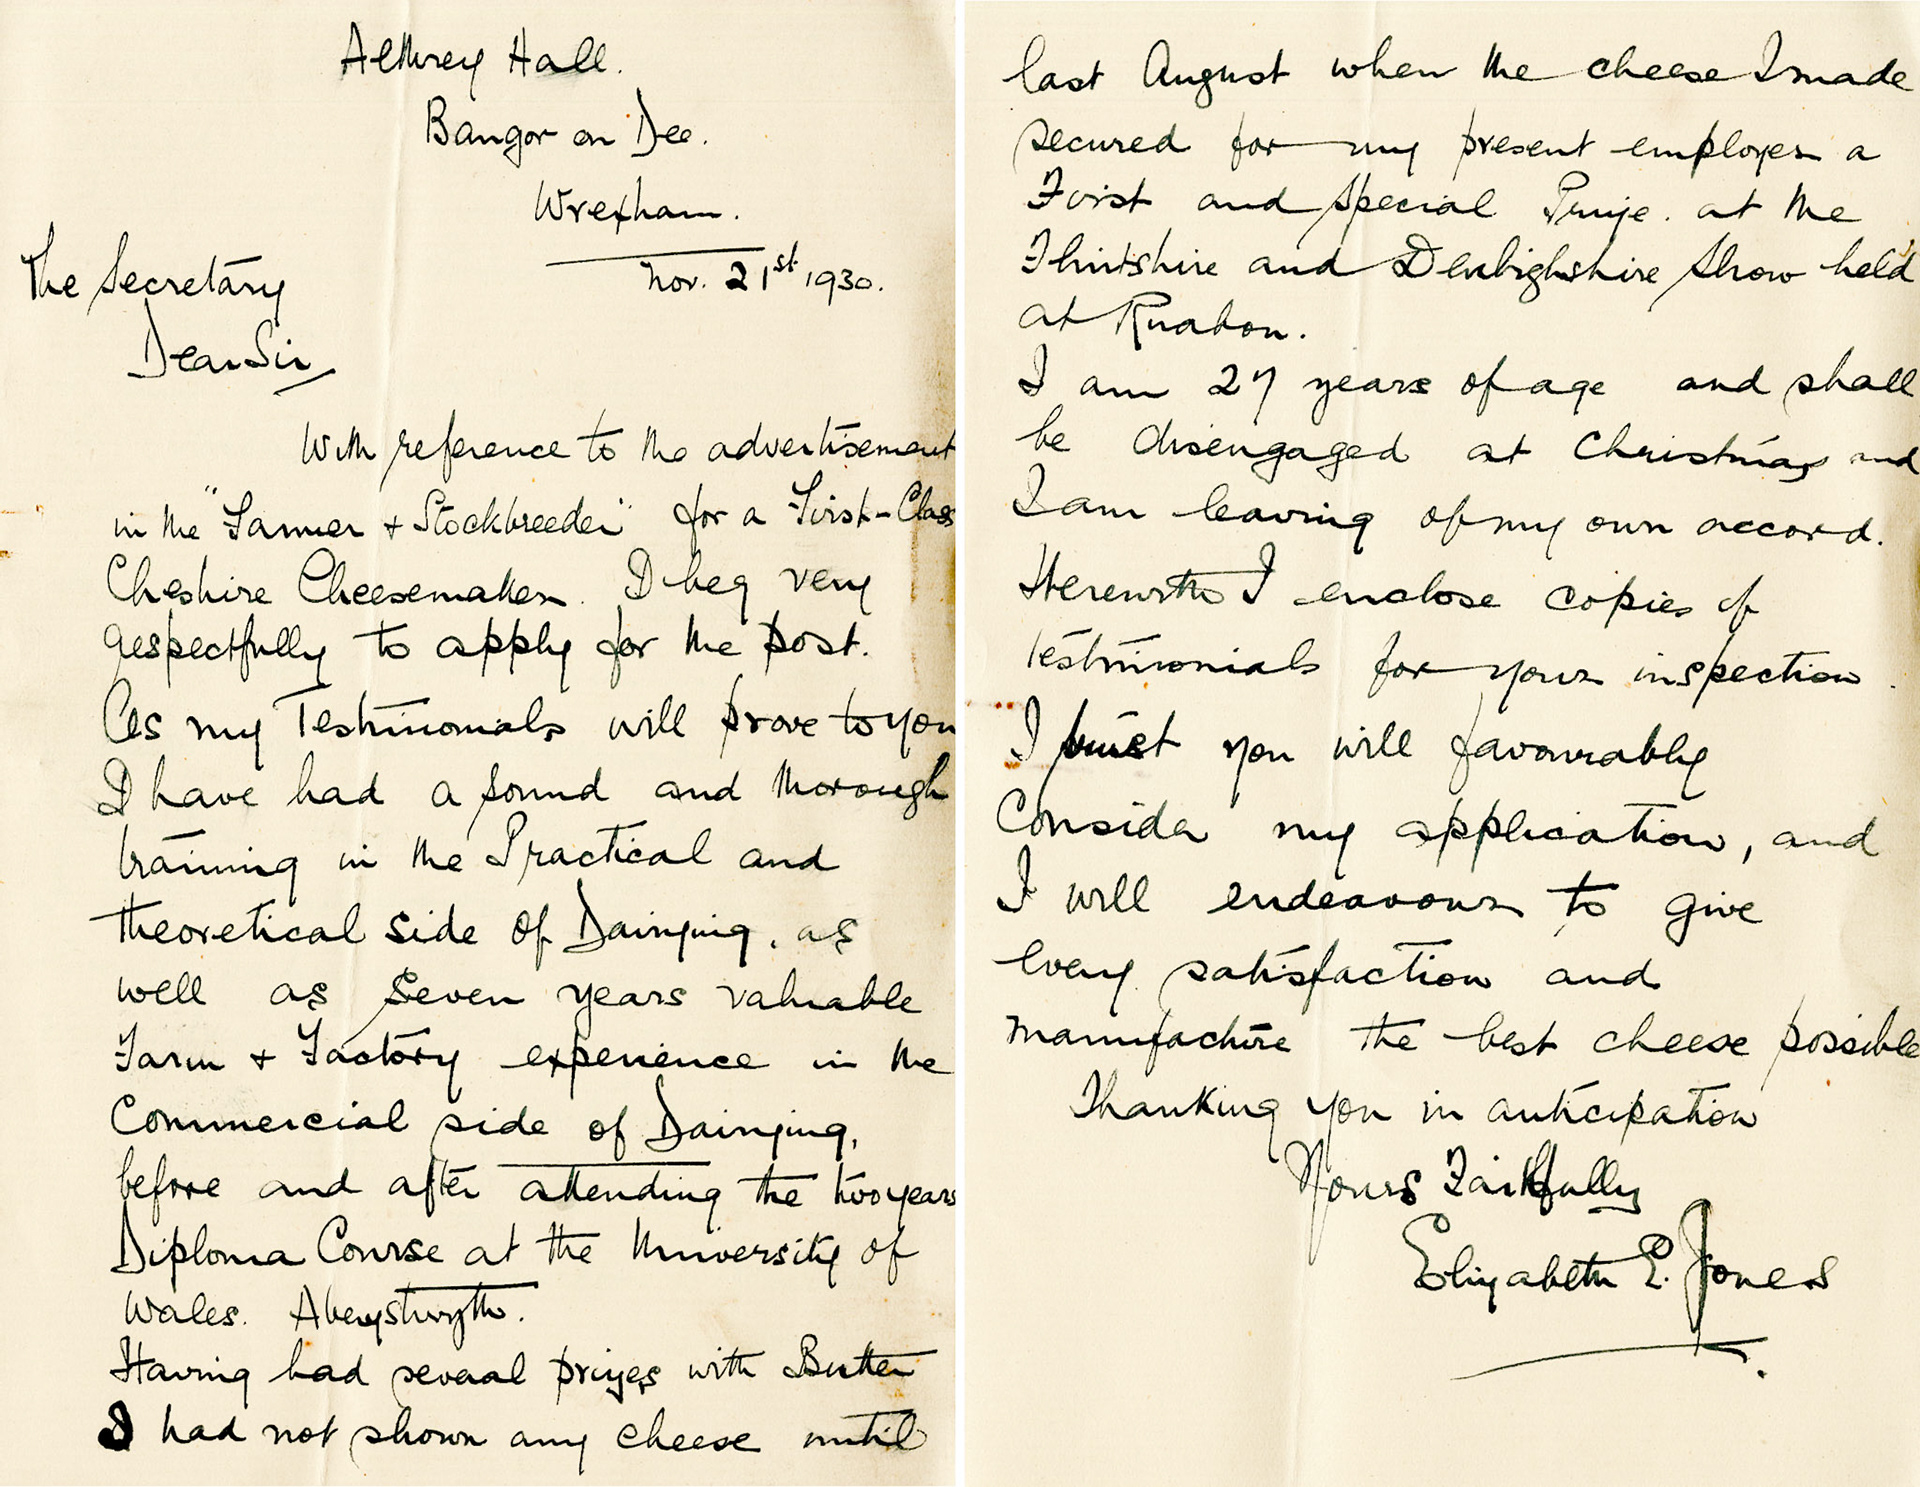 Althrey Hall.
Bangor on Dee.
Wrexham.
Nov. 21st 1930.
The Secretary
Dear Sir
With reference to the advertisement
in the "Farmer + Stockbreeder" for a First-Class
Cheshire Cheesemaker. I beg very
respectfully to apply for the post.
As my Testimonials will prove to you
I have had a sound and thorough
training in the Practical and
theoretical side of Dairying, as
well as Seven years valuable
Farm + Factory experience in the
Commercial side of Dairying,
before and after attending the two years
Diploma Course at the University of
Wales. Aberystwyth.
Having had several prizes with Butter
I had not shown any cheese until
last August when the cheese I made
secured for my present employer a
First and Special Prize. at the
Flintshire and Denbighshire Show held
at Ruabon.
I am 27 years of age and shall
be disengaged at Christmas and
I am leaving of my own accord.
Herewith I enclose copies of
testimonials for your inspection.
I trust you will favourably
Consider my application, and
I will endeavour to give
every satisfaction and
manufacture the best cheese possible
Thanking you in anticipation
Yours Faithfully
Elizabeth E. Jones